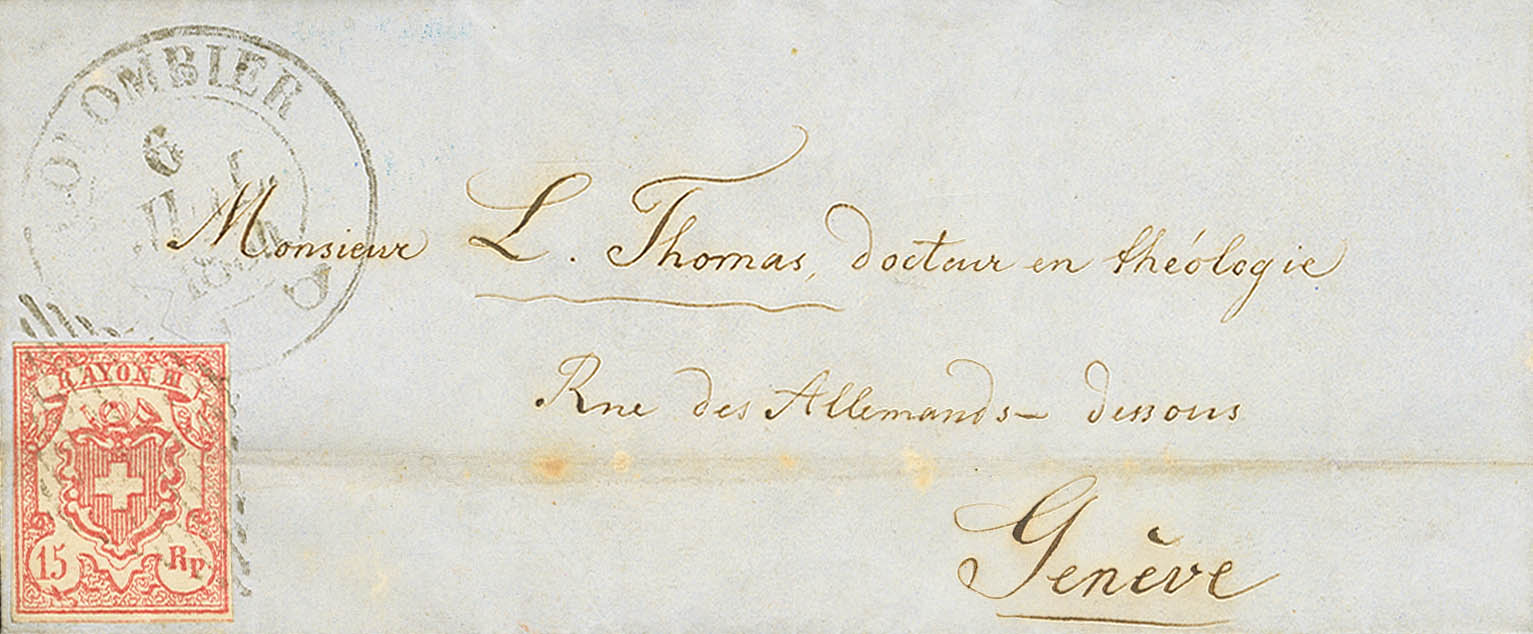 COLOMBIER
6
Monsieur L. Thomas, docteur en théologie
Rue des Allemands - dessous
Genève
RAYON III
15 Rp.